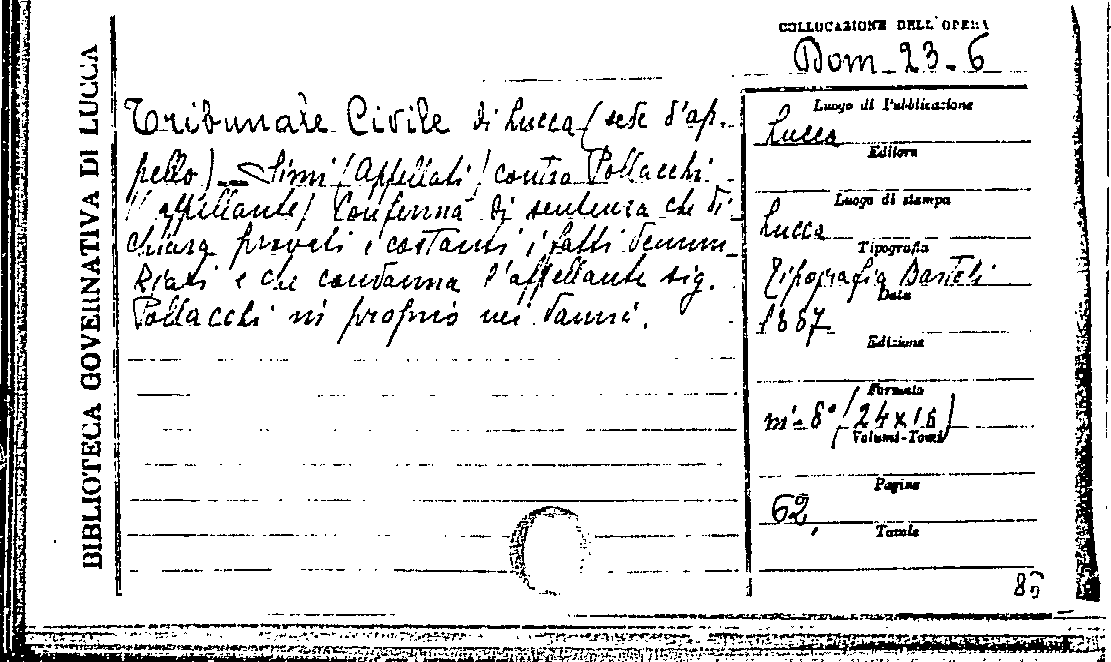 BIBLIOTECA GOVERNATIVA DI LUCCA
COLLOCAZIONE DELL'OPERA
Dom. 23-6
Tribunale Civile di Lucca (sede d'ap-
pello) - Simi (Appellati) contro Pollacchi
(appellante) Conferma di sentenza che di-
chiara provati e costanti i fatti denun-
ziati e che condanna l'appellante sig.
Pollacchi in proprio nei danni.
Luogo di Pubblicazione
Lucca
Editore
Luogo di stampa
Lucca
Tipografia
Tipografia
Data
1887
Edizione
Formato
in-8° (24x16)
Volumi-Tomi
Pagine
62.
Tavole